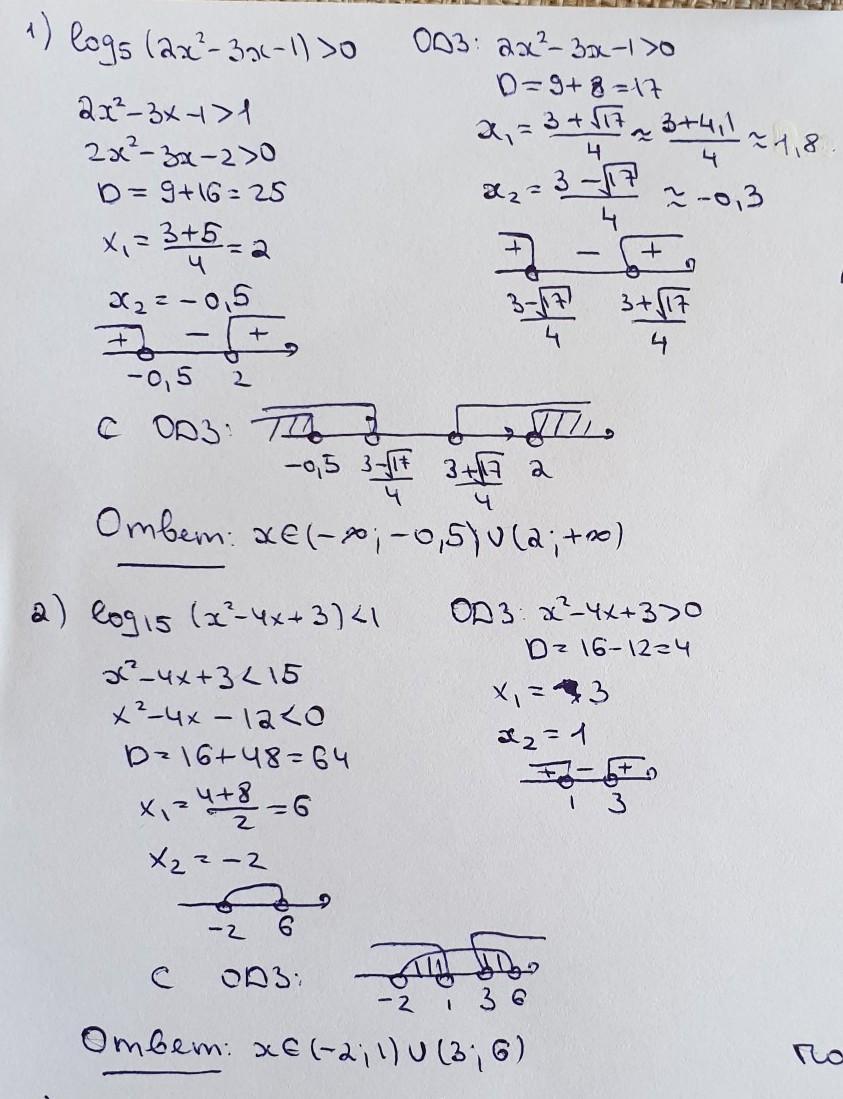 1) log₅ (2x²-3x-1)>0
2x²-3x-1>1
2x²-3x-2>0
D=9+16=25
x₁=(3+5)/4=2
x₂=-0,5
+ - +
-0,5 2
ОДЗ: 2x²-3x-1>0
D=9+8=17
x₁=(3+√17)/4≈(3+4,1)/4≈1,8
x₂=(3-√17)/4≈-0,3
+ - +
(3-√17)/4 (3+√17)/4
С ОДЗ:
-0,5 (3-√17)/4 (3+√17)/4 2
Ответ: x∈(-∞;-0,5)∪(2;+∞)
2) log₁₅ (x²-4x+3)<1
x²-4x+3<15
x²-4x-12<0
D=16+48=64
x₁=(4+8)/2=6
x₂=-2
-2 6
ОДЗ: x²-4x+3>0
D=16-12=4
x₁=3
x₂=1
+ - +
1 3
С ОДЗ:
-2 1 3 6
Ответ: x∈(-2;1)∪(3;6)